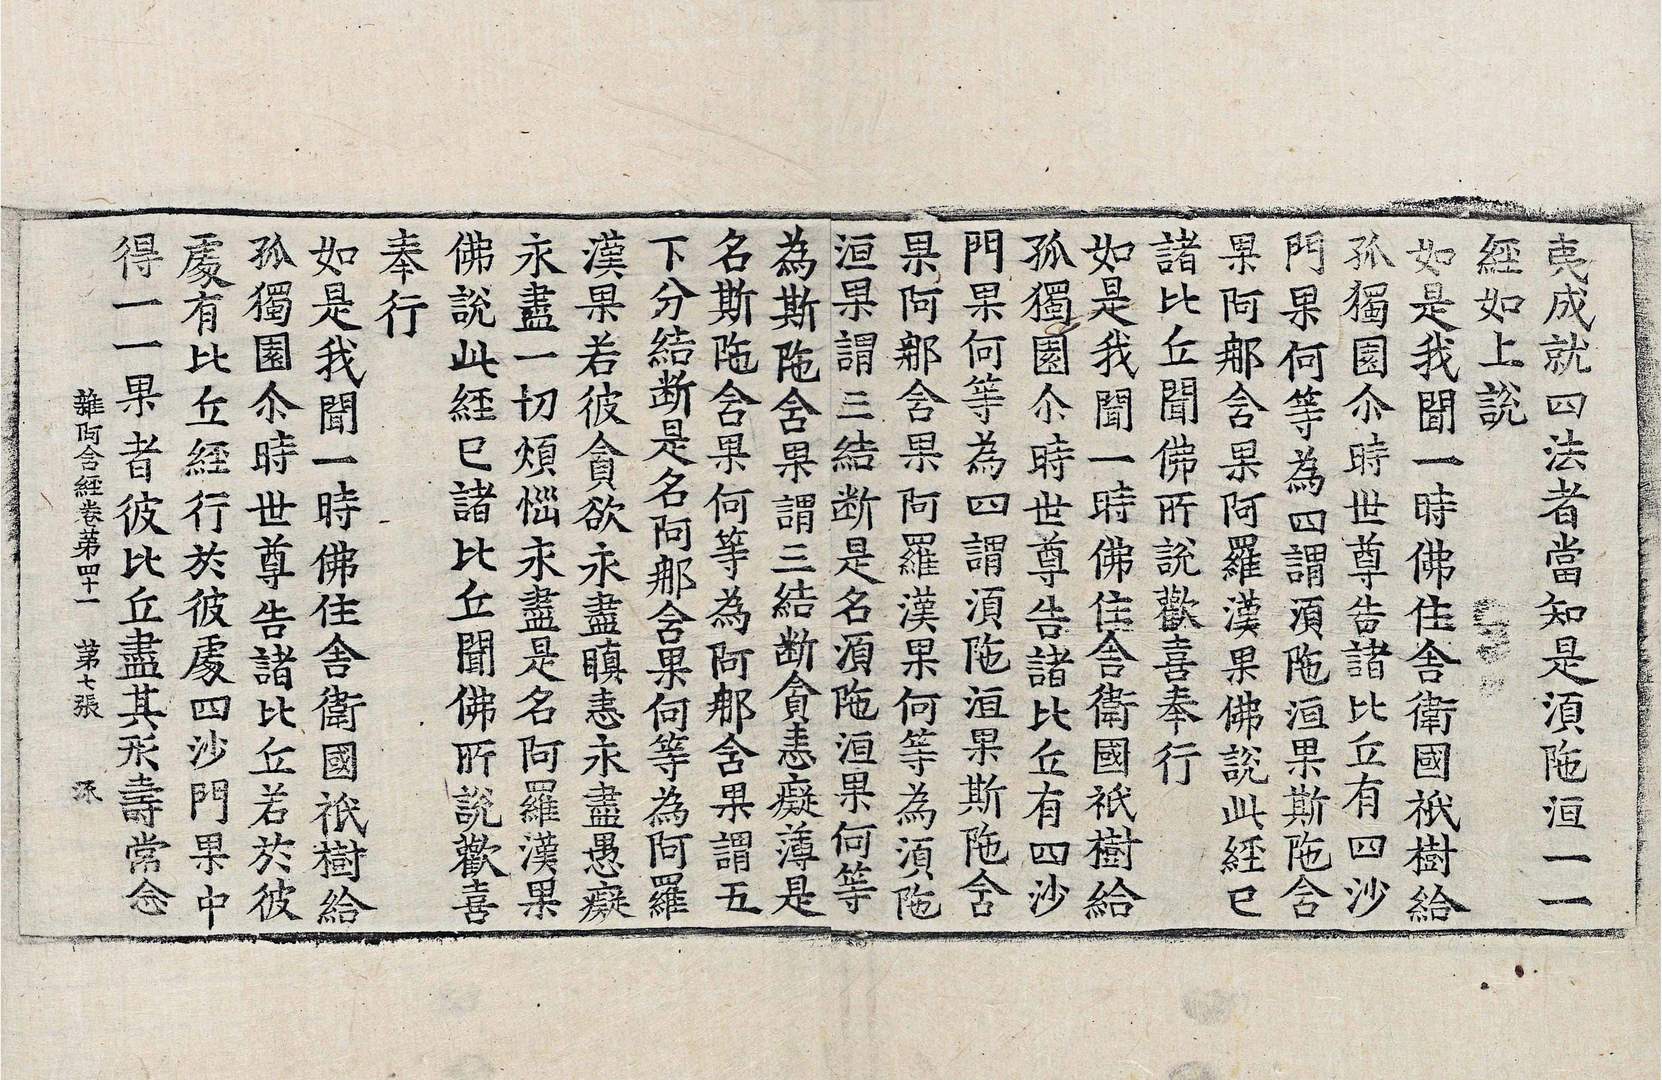 夷成就四法者當知是湏陁洹一一
經如上說
如是我聞一時佛住舍衛國祇樹給
孤獨園尒時世尊告諸比丘有四沙
門果何等為四謂湏陁洹果斯陁含
果阿那含果阿羅漢果佛說此經已
諸比丘聞佛所說歡喜奉行
如是我聞一時佛住舍衛國祇樹給
孤獨園尒時世尊告諸比丘有四沙
門果何等為四謂湏陁洹果斯陁含
果阿那含果阿羅漢果何等為湏陁
洹果謂三結断是名湏陁洹果何等
為斯陁含果謂三結断貪恚癡薄是
名斯陁含果何等為阿那含果謂五
下分結断是名阿那含果何等為阿羅
漢果若彼貪欲永盡瞋恚永盡愚癡
永盡一切煩惱永盡是名阿羅漢果
佛說此經已諸比丘聞佛所說歡喜
奉行
如是我聞一時佛住舍衛國祇樹給
孤獨園尒時世尊告諸比丘若於彼
處有比丘經行於彼處四沙門果中
得一一果者彼比丘盡其形壽常念
雜阿含經卷苐四十一 苐七張 㳅